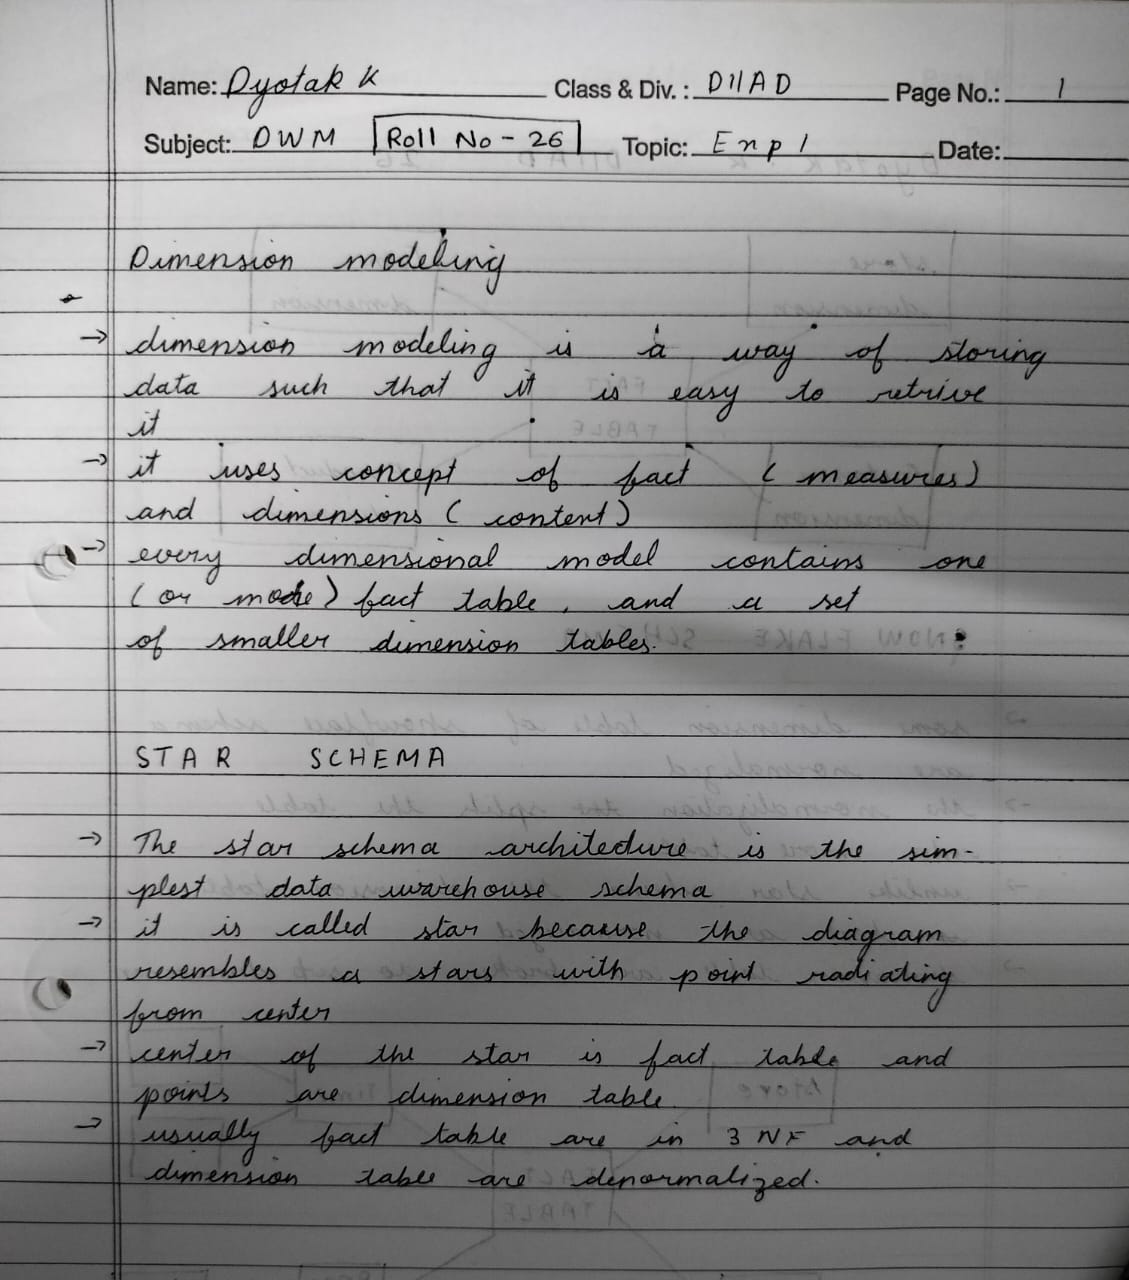 Name: Dyotak K Class & Div. : D11AD Page No.: 1
Subject: DWM Roll No - 26 Topic: Exp 1 Date:
Dimension modeling
→ dimension modeling is a way of storing
data such that it is easy to retrive
it
→ it uses concept of fact (measures)
and dimensions (content)
→ every dimensional model contains one
(or more) fact table, and a set
of smaller dimension tables.
STAR SCHEMA
→ The star schema architecture is the sim-
plest data warehouse schema
→ it is called star because the diagram
resembles a stars with point radiating
from center
→ center of the star is fact table and
points are dimension table.
→ usually fact table are in 3 NF and
dimension table are denormalized.